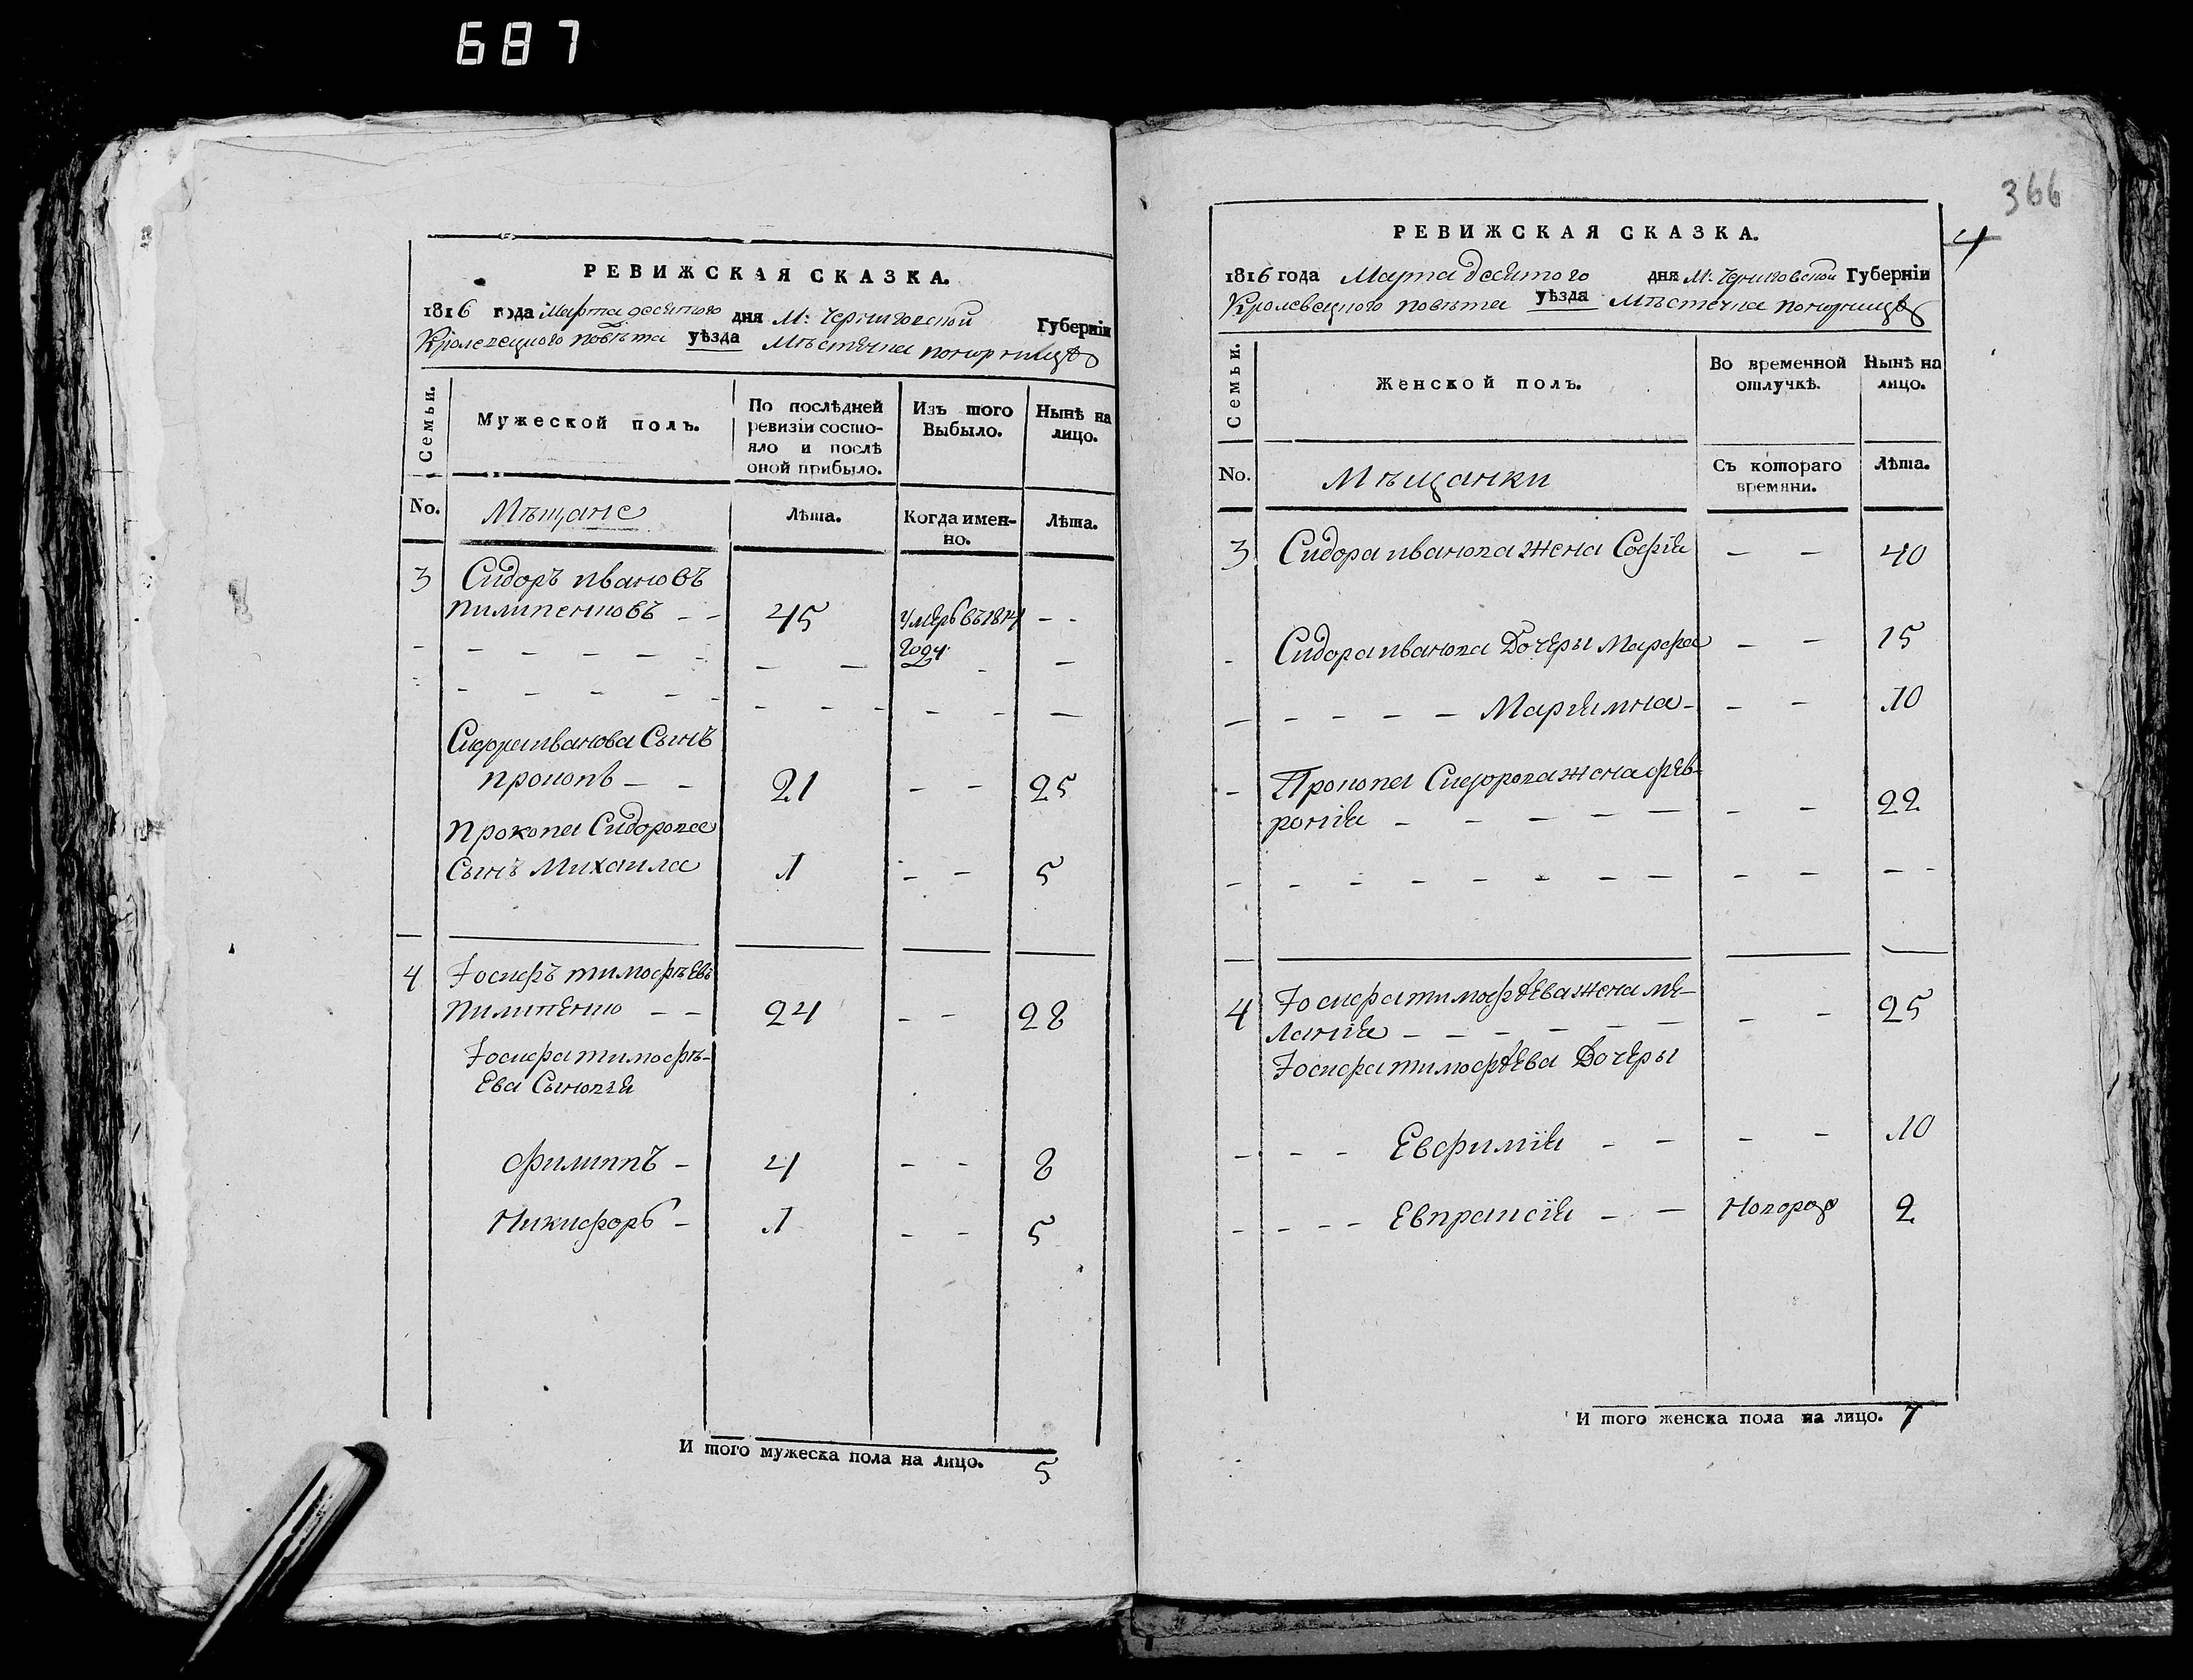 687
РЕВИЖСКАЯ СКАЗКА.
1816 года Марта десятого дня М: Черниговской Губерніи
Кролевецкого повѣта уѣзда Мѣстечка понорницѣ
Семьи.
Мужеской полъ.
По послѣдней ревизіи состо-
яло и послѣ оной прибыло.
Изъ того Выбыло.
Нынѣ на лицо.
No.
Мѣщане
Лѣта.
Когда имен-
но.
Лѣта.
3 Сидоръ ивановъ
пилипенковъ - - 45 умеръ въ 1814 - -
году
Сидора иванова Сынъ
прокопъ - - 21 - - 25
прокопа Сидорова
Сынъ Михаила 1 - - 5
4 Іосифъ тимофѣевъ
пилипенко - - 24 - - 28
Іосифа тимофѣ-
ева Сыновья
филиппъ - 4 - - 8
Никифоръ - 1 - - 5
И того мужеска пола на лицо. 5
366
4
РЕВИЖСКАЯ СКАЗКА.
1816 года Марта десятого дня М: Черниговской Губерніи
Кролевецкого повѣта уѣзда Мѣстечка понорницѣ
Семьи.
Женской полъ.
Во временной отлучкѣ.
Нынѣ на лицо.
No.
Мѣщанки
Съ котораго времяни.
Лѣта.
3 Сидора иванова жена Софія - - 40
- Сидора иванова Дочеры Марфа - - 15
- - - - - Мариямна - - - 10
- Прокопа Сидорова жена фев-
ронія - - - - - - - 22
4 Іосифа тимофѣева жена ме-
ланія - - - - - - - 25
Іосифа тимофѣева Дочеры
- - - Евфимія - - - - 10
- - - - Евпраксія - - Новорож 2
И того женска пола на лицо. 7